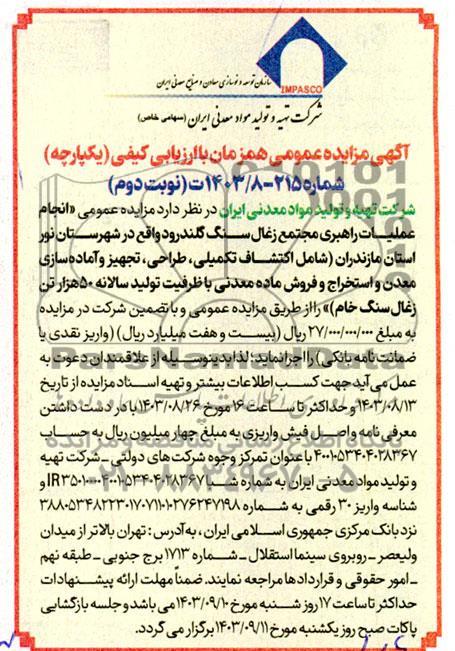 IMPASCO
سازمان توسعه و نوسازی معادن و صنایع معدنی ایران
شرکت تهیه و تولید مواد معدنی ایران (سهامی خاص)
آگهی مزایده عمومی همزمان با ارزیابی کیفی (یکپارچه)
شماره ۲۱۵-۱۴۰۳/۸ت (نوبت دوم)
شرکت تهیه و تولید مواد معدنی ایران در نظر دارد مزایده عمومی «انجام
عملیات راهبری مجتمع زغال سنگ گلندرود واقع در شهرستان نور
استان مازندران (شامل اکتشاف تکمیلی، طراحی، تجهیز و آماده سازی
معدن و استخراج و فروش ماده معدنی با ظرفیت تولید سالانه ۵۰هزار تن
زغال سنگ خام)» را از طریق مزایده عمومی و با تضمین شرکت در مزایده
به مبلغ ۲۷/۰۰۰/۰۰۰/۰۰۰ ریال (بیست و هفت میلیارد ریال) (واریز نقدی یا
ضمانت نامه بانکی) را اجرا نماید؛ لذا بدینوسیله از علاقمندان دعوت به
عمل می آید جهت کسب اطلاعات بیشتر و تهیه اسناد مزایده از تاریخ
۱۴۰۳/۰۸/۱۳ و حداکثر تا ساعت ۱۶ مورخ ۱۴۰۳/۰۸/۲۶ با در دست داشتن
معرفی نامه و اصل فیش واریزی به مبلغ چهار میلیون ریال به حساب
۴۰۰۱۰۵۳۴۰۴۰۲۸۳۶۷ با عنوان تمرکز وجوه شرکت های دولتی ـ شرکت تهیه
و تولید مواد معدنی ایران به شماره شبا IR۳۵۰۱۰۰۰۰۴۰۰۱۰۵۳۴۰۴۰۲۸۳۶۷ و
شناسه واریز ۳۰ رقمی به شماره ۳۸۸۰۵۳۴۸۲۲۳۰۱۷۰۷۱۱۰۱۰۲۷۶۲۴۷۱۹۸
نزد بانک مرکزی جمهوری اسلامی ایران، به آدرس: تهران بالاتر از میدان
ولیعصر ـ روبروی سینما استقلال ـ شماره ۱۷۱۳ برج جنوبی ـ طبقه نهم
ـ امور حقوقی و قراردادها مراجعه نمایند. ضمناً مهلت ارائه پیشنهادات
حداکثر تا ساعت ۱۷ روز شنبه مورخ ۱۴۰۳/۰۹/۱۰ می باشد و جلسه بازگشایی
پاکات صبح روز یکشنبه مورخ ۱۴۰۳/۰۹/۱۱ برگزار می گردد.